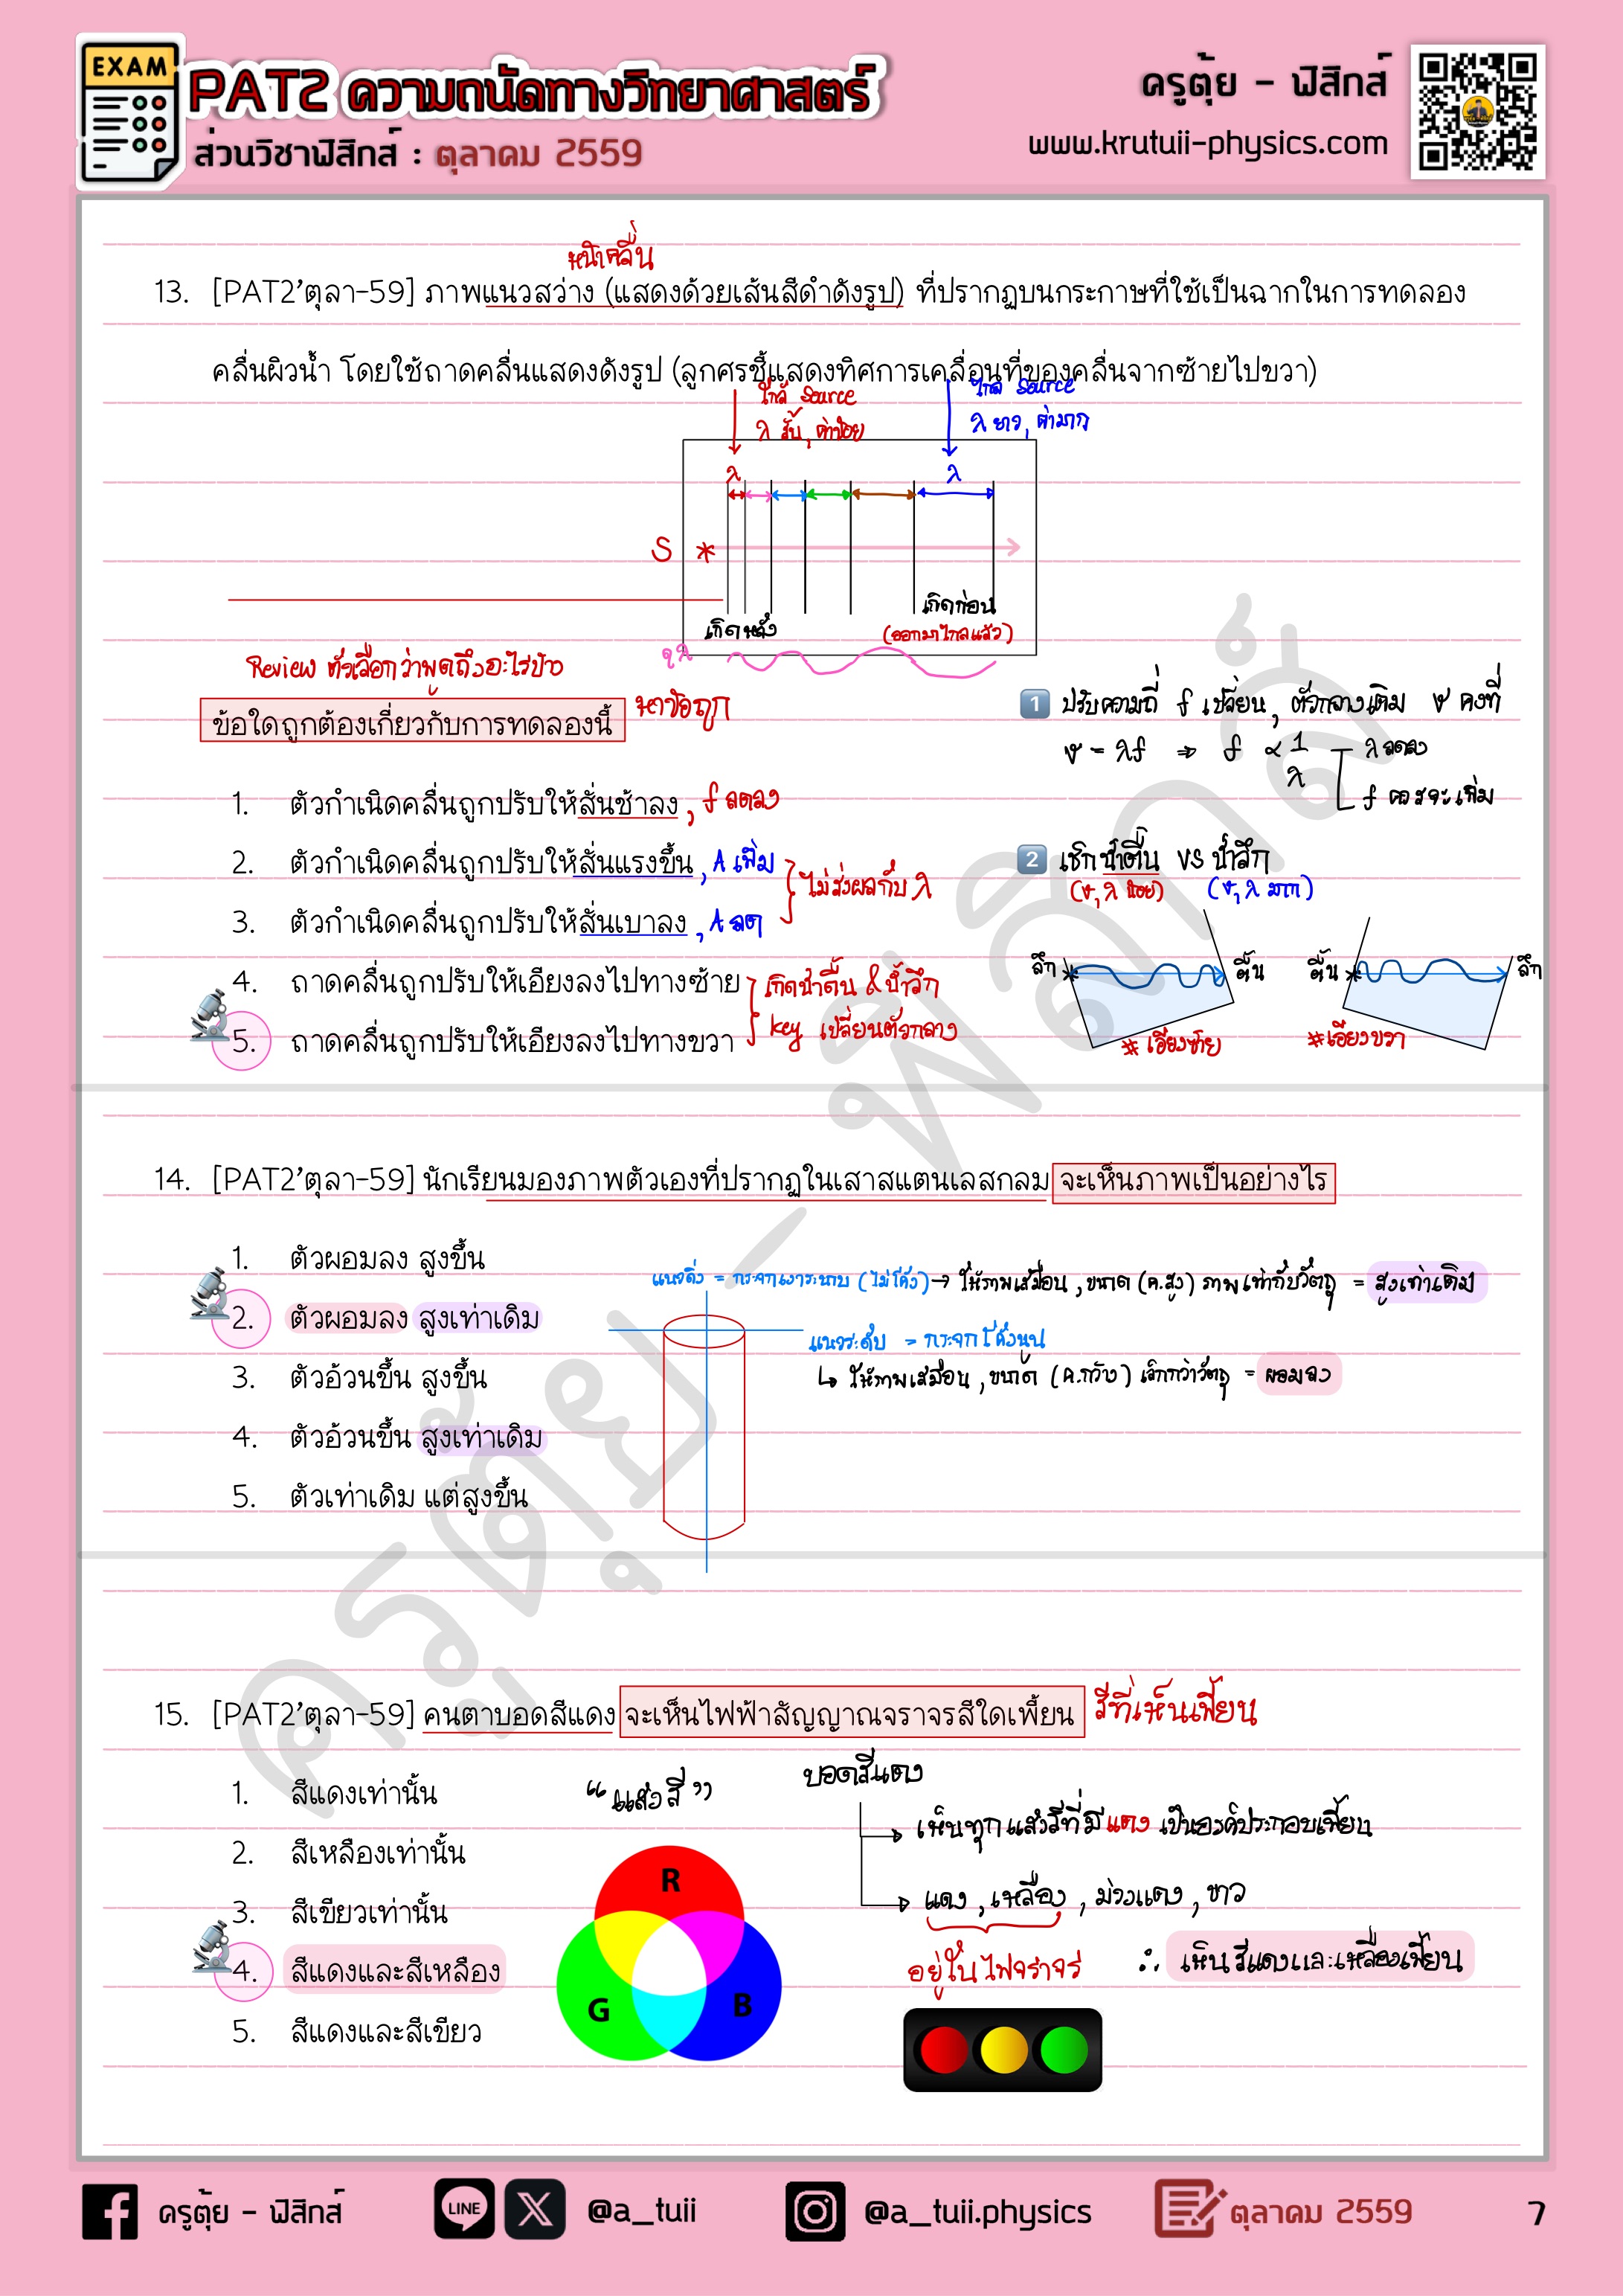 EXAM
PAT2 ความถนัดทางวิทยาศาสตร์
ส่วนวิชาฟิสิกส์ : ตุลาคม 2559
ครูตุ้ย - ฟิสิกส์
www.krutuii-physics.com
หน้าคลื่น
13. [PAT2'ตุลา-59] ภาพแนวสว่าง (แสดงด้วยเส้นสีดำดังรูป) ที่ปรากฏบนกระดาษที่ใช้เป็นฉากในการทดลอง
คลื่นผิวน้ำ โดยใช้ถาดคลื่นแสดงดังรูป (ลูกศรชี้แสดงทิศการเคลื่อนที่ของคลื่นจากซ้ายไปขวา)
ใกล้ Source
λ สั้น, ค่าน้อย
ไกล Source
λ ยาว, ค่ามาก
λ
λ
S *
เกิดหลัง
เกิดก่อน
(ออกมาไกลแล้ว)
ดู λ
Review ตัวเลือกว่าพูดถึงอะไรบ้าง
ข้อใดถูกต้องเกี่ยวกับการทดลองนี้ หาข้อถูก
1. ตัวกำเนิดคลื่นถูกปรับให้สั่นช้าลง , f ลดลง
2. ตัวกำเนิดคลื่นถูกปรับให้สั่นแรงขึ้น , A เพิ่ม
3. ตัวกำเนิดคลื่นถูกปรับให้สั่นเบาลง , A ลด
ไม่ส่งผลกับ λ
4. ถาดคลื่นถูกปรับให้เอียงลงไปทางซ้าย
5. ถาดคลื่นถูกปรับให้เอียงลงไปทางขวา
เกิดน้ำตื้น & น้ำลึก
key เปลี่ยนตัวกลาง
1 ปรับความถี่ f เปลี่ยน, ตัวกลางเดิม v คงที่
v = λf ⇒ f ∝ 1/λ
λ ลดลง
f ควรจะเพิ่ม
2 เช็กน้ำตื้น VS น้ำลึก
(v, λ น้อย) (v, λ มาก)
ลึก ตื้น ตื้น ลึก
* เอียงซ้าย
* เอียงขวา
14. [PAT2'ตุลา-59] นักเรียนมองภาพตัวเองที่ปรากฏในเสาสแตนเลสกลม จะเห็นภาพเป็นอย่างไร
1. ตัวผอมลง สูงขึ้น
2. ตัวผอมลง สูงเท่าเดิม
3. ตัวอ้วนขึ้น สูงขึ้น
4. ตัวอ้วนขึ้น สูงเท่าเดิม
5. ตัวเท่าเดิม แต่สูงขึ้น
แนวดิ่ง = กระจกเงาระนาบ (ไม่โค้ง) → ให้ภาพเสมือน, ขนาด (ค.สูง) ภาพเท่ากับวัตถุ = สูงเท่าเดิม
แนวระดับ = กระจกโค้งนูน
↳ ให้ภาพเสมือน, ขนาด (ค.กว้าง) เล็กกว่าวัตถุ = ผอมลง
15. [PAT2'ตุลา-59] คนตาบอดสีแดง จะเห็นไฟฟ้าสัญญาณจราจรสีใดเพี้ยน สีที่เห็นเพี้ยน
1. สีแดงเท่านั้น
2. สีเหลืองเท่านั้น
3. สีเขียวเท่านั้น
4. สีแดงและสีเหลือง
5. สีแดงและสีเขียว
“แสงสี”
R
G
B
บอดสีแดง
เห็นทุกแสงสีที่มีแดง เป็นองค์ประกอบเพี้ยน
แดง, เหลือง, ม่วงแดง, ขาว
อยู่ในไฟจราจร
∴ เห็นสีแดงและเหลืองเพี้ยน
ครูตุ้ย - ฟิสิกส์
ครูตุ้ย - ฟิสิกส์
LINE
@a_tuii
@a_tuii.physics
ตุลาคม 2559
7